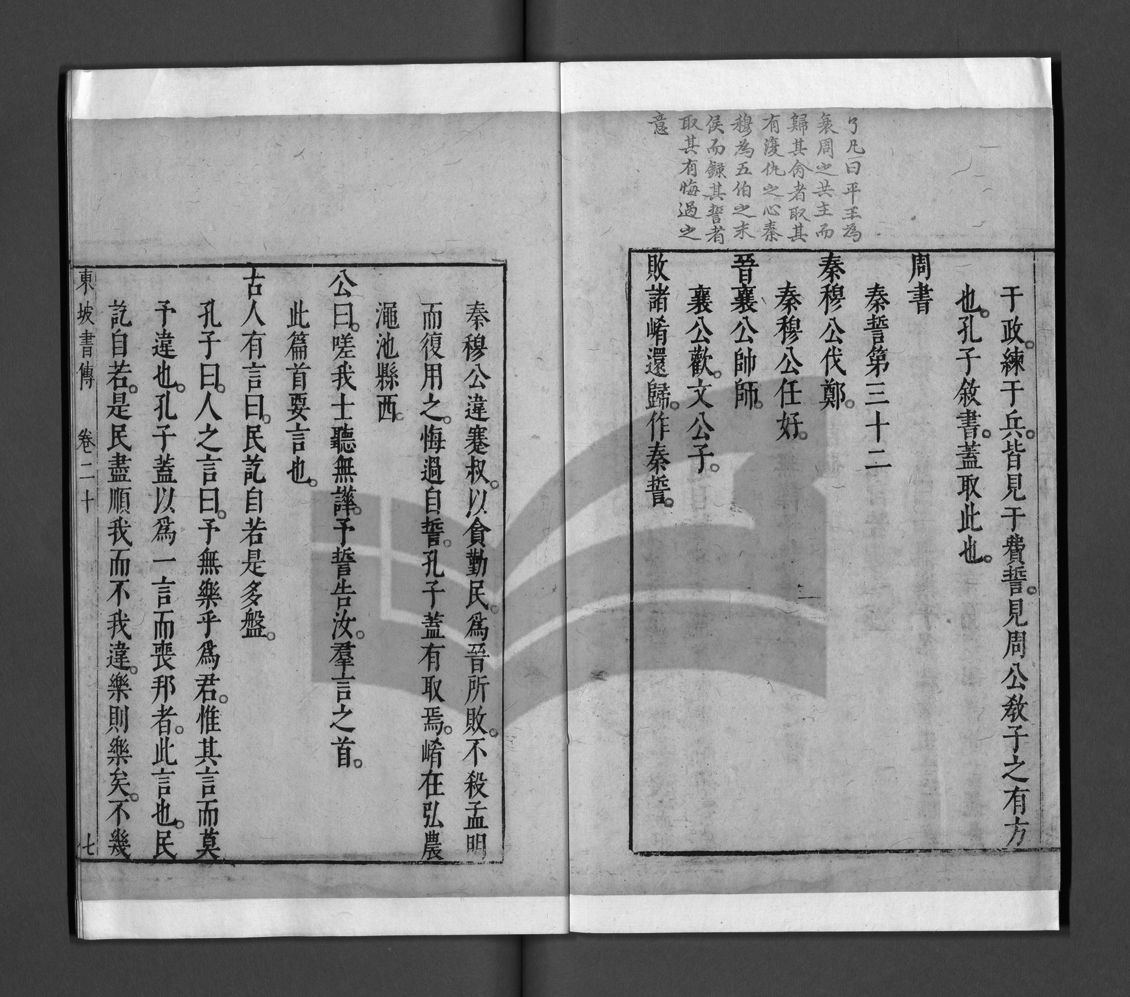 了凡曰平王為
衰周之共主而
歸其侖者取其
有復仇之心秦
穆為五伯之末
侯而錄其誓者
取其有悔過之
意
于政練于兵。皆見于費誓。見周公敎子之有方
也。孔子敘書。蓋取此也。
周書
秦誓第三十二
秦穆公伐鄭。
秦穆公任好。
晉襄公帥師。
襄公歡。文公子。
敗諸崤還歸。作秦誓。
秦穆公違蹇叔。以貪勤民。爲晉所敗。不殺孟明
而復用之。悔過自誓。孔子蓋有取焉。崤在弘農
澠池縣西。
公曰。嗟我士聽無譁。予誓告汝。羣言之首。
此篇首要言也。
古人有言曰。民訖自若是多盤。
孔子曰。人之言曰。予無樂乎爲君。惟其言而莫
予違也。孔子蓋以爲一言而喪邦者。此言也。民
訖自若。是民盡順我而不我違。樂則樂矣。不幾
東坡書傳 卷二十 七